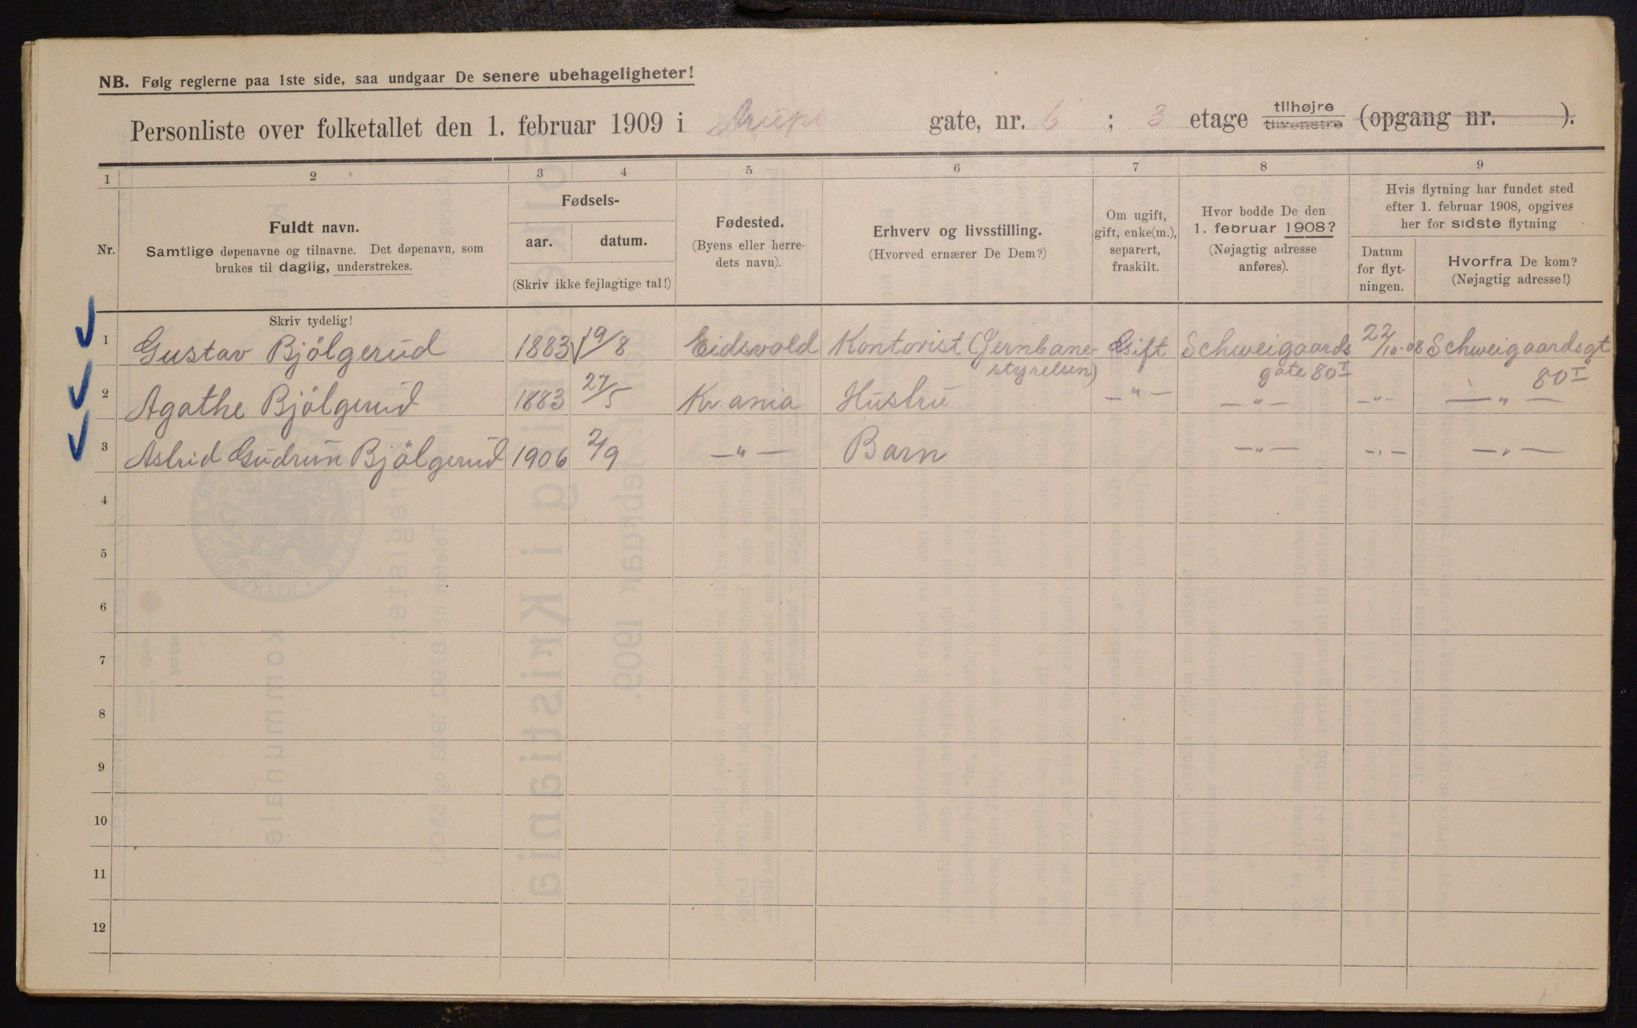 NB. Følg reglerne paa 1ste side, saa undgaar De senere ubehageligheter!
Personliste over folketallet den 1. februar 1909 i Arups gate, nr. 6 ; 3 etage tilhøjre tilvenstre (opgang nr. ).
1 2 3 4 5 6 7 8 9
Nr.
Fuldt navn.
Samtlige døpenavne og tilnavne. Det døpenavn, som
brukes til daglig, understrekes.
Fødsels-
aar. datum.
(Skriv ikke fejlagtige tal!)
Fødested.
(Byens eller herre-
dets navn).
Erhverv og livsstilling.
(Hvorved ernærer De Dem?)
Om ugift,
gift, enke(m.),
separert,
fraskilt.
Hvor bodde De den
1. februar 1908?
(Nøjagtig adresse
anføres).
Hvis flytning har fundet sted
efter 1. februar 1908, opgives
her for sidste flytning
Datum
for flyt-
ningen.
Hvorfra De kom?
(Nøjagtig adresse!)
Skriv tydelig!
1 Gustav Bjölgerud 1883 19/8 Eidsvold Kontorist (Jernbane- Gift Schweigaards 22/10-08 Schweigaardsgt
styrelsen) gate 80 I 80 I
2 Agathe Bjölgerud 1883 27/5 Kr.ania Hustru — " — — " — — " — — " —
3 Astrid Gudrun Bjölgerud 1906 2/9 — " — Barn — " — — " — — " —
4
5
6
7
8
9
10
11
12